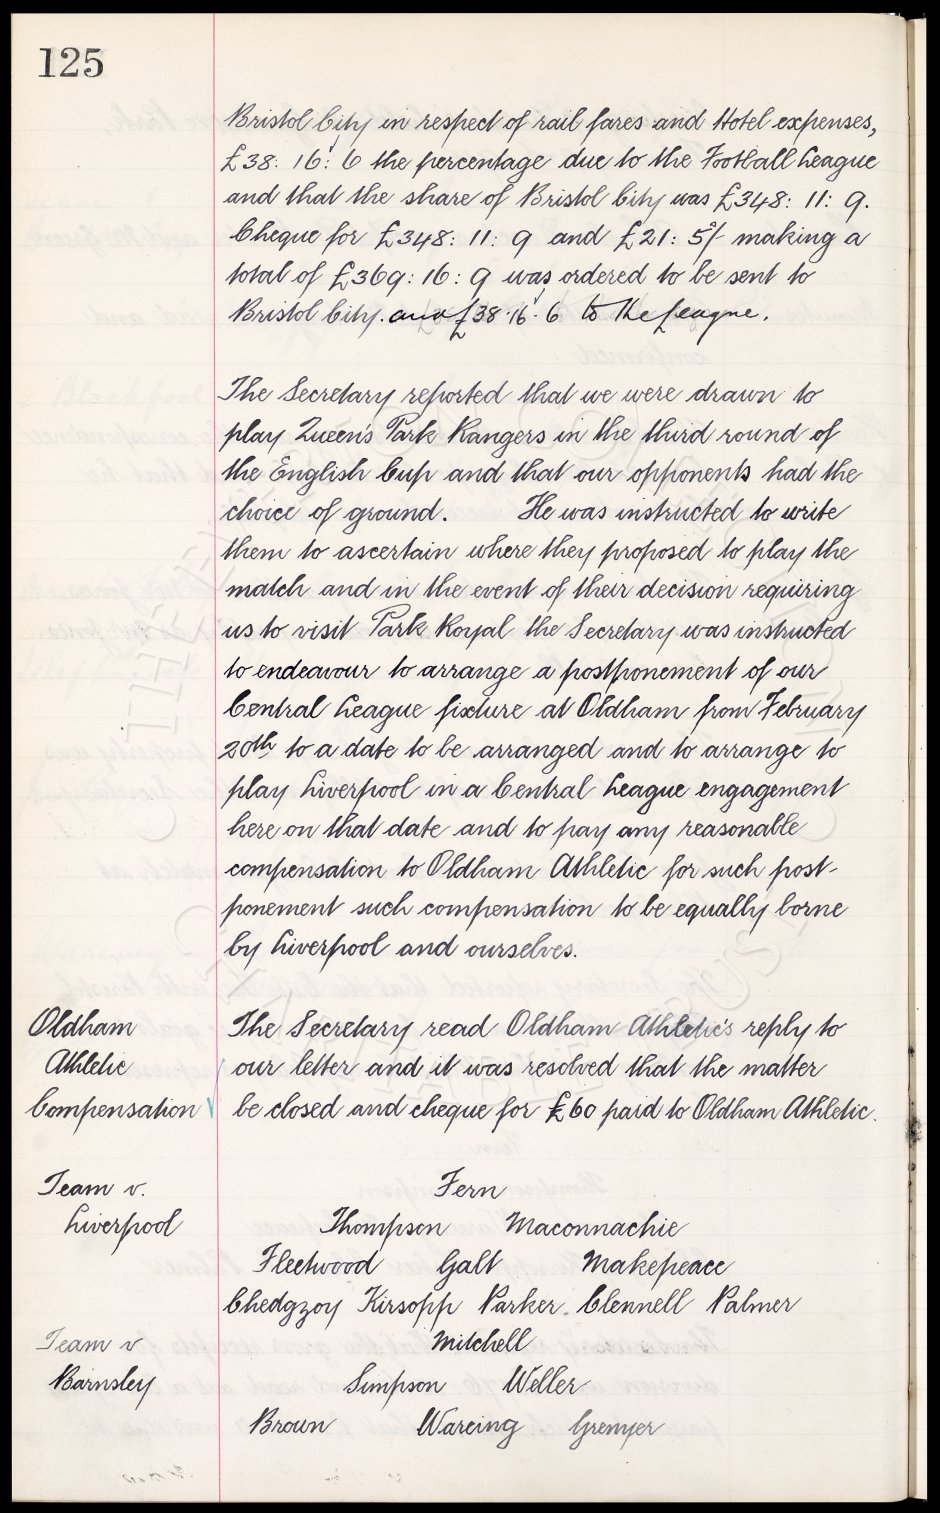 125
Bristol City in respect of rail fares and Hotel expenses,
£38: 16: 6 the percentage due to the Football League
and that the share of Bristol City was £348: 11: 9.
Cheque for £348: 11: 9 and £21: 5/- making a
total of £369: 16: 9 was ordered to be sent to
Bristol City. and £38. 16. 6 to the League.
The Secretary reported that we were drawn to
play Queen's Park Rangers in the third round of
the English Cup and that our opponents had the
choice of ground. He was instructed to write
them to ascertain where they proposed to play the
match and in the event of their decision requiring
us to visit Park Royal the Secretary was instructed
to endeavour to arrange a postponement of our
Central League fixture at Oldham from February
20th to a date to be arranged and to arrange to
play Liverpool in a Central League engagement
here on that date and to pay any reasonable
compensation to Oldham Athletic for such post-
ponement such compensation to be equally borne
by Liverpool and ourselves.
Oldham
Athletic
Compensation
The Secretary read Oldham Athletic's reply to
our letter and it was resolved that the matter
be closed and cheque for £60 paid to Oldham Athletic.
Team v.
Liverpool
Fern
Thompson Maconnachie
Fleetwood Galt Makepeace
Chedgzoy Kirsopp Parker Clennell Palmer
Team v
Barnsley
Mitchell
Simpson Weller
Brown Wareing Grenyer